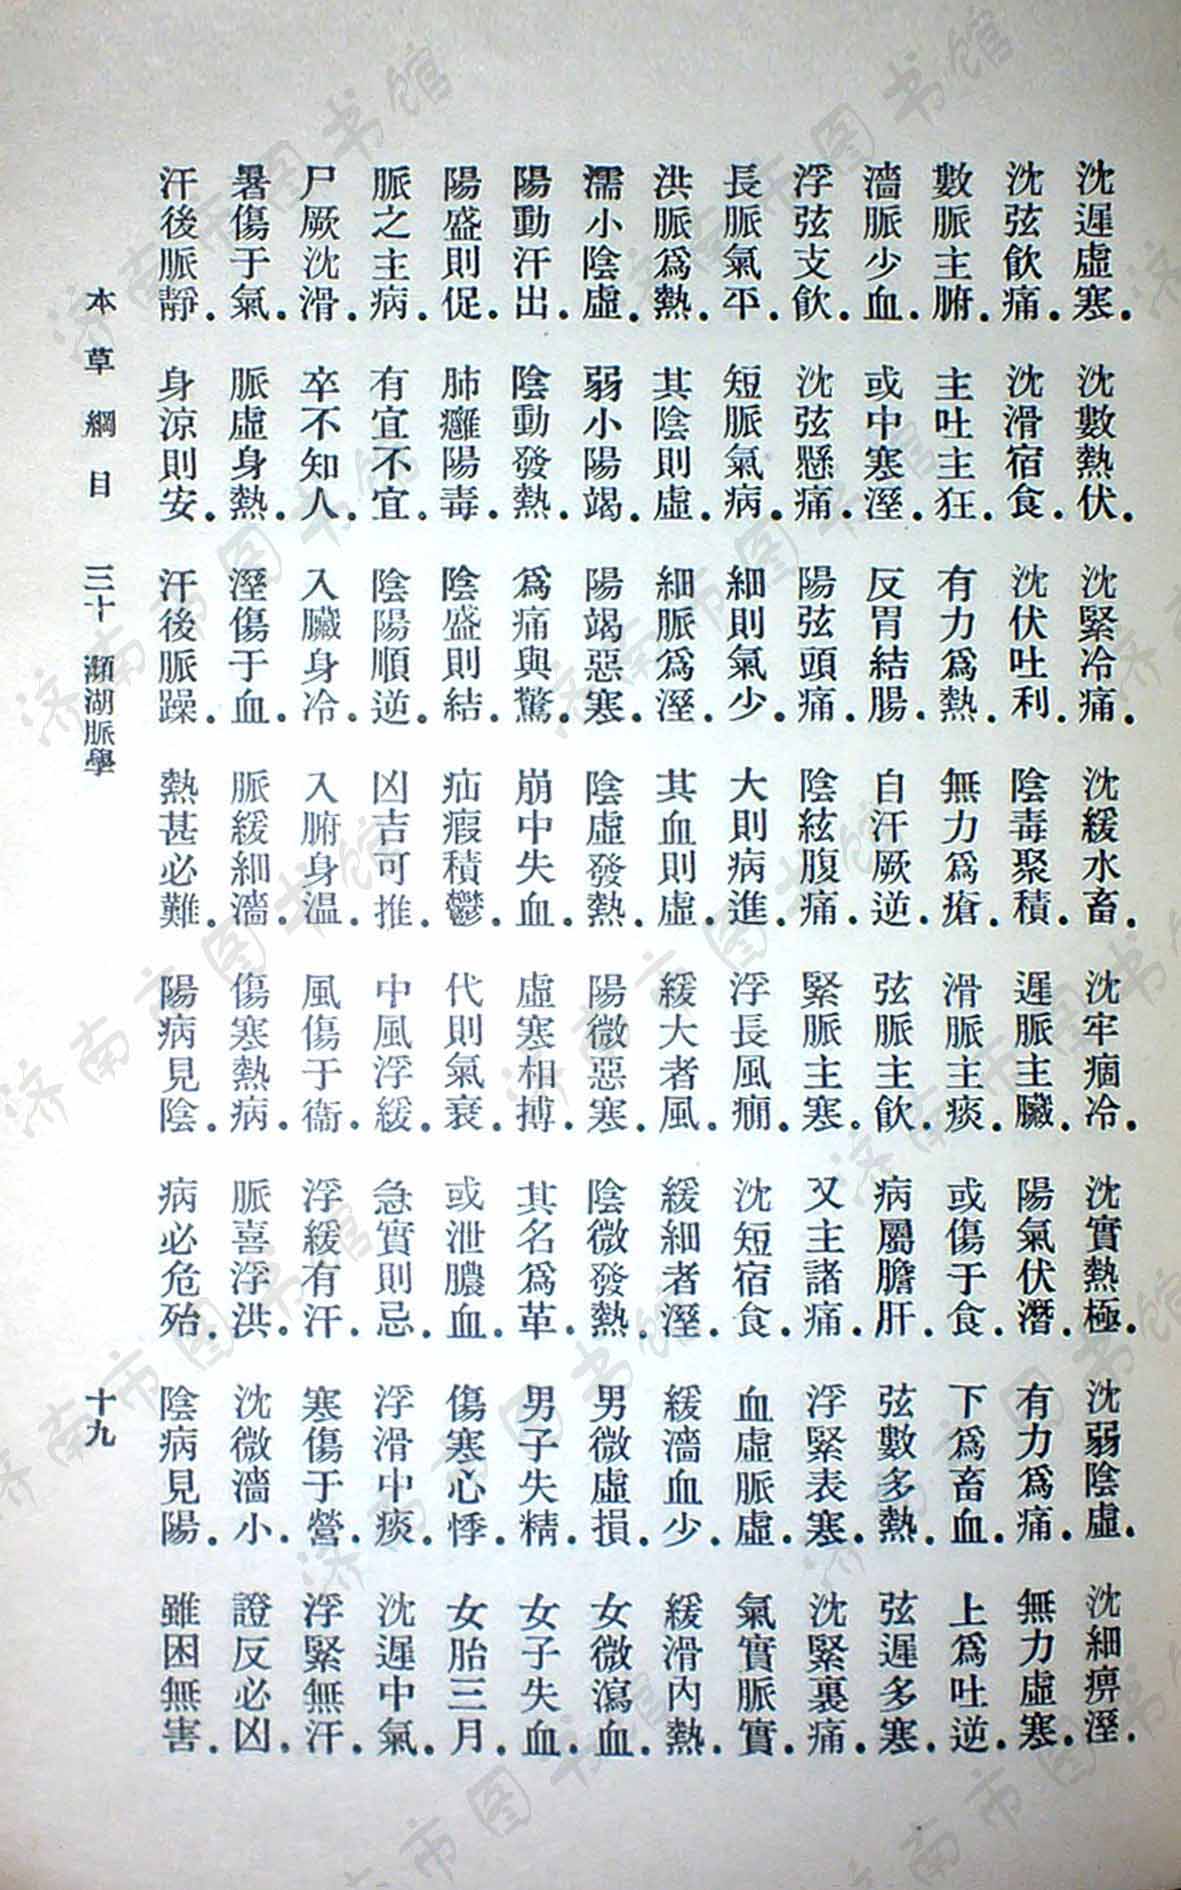 沈遲虛寒．沈數熱伏．沈緊冷痛．沈緩水畜．沈牢痼冷．沈實熱極．沈弱陰虛．沈細痹溼．
沈弦飲痛．沈滑宿食．沈伏吐利．陰毒聚積．遲脈主臟．陽氣伏潛．有力爲痛．無力虛寒．
數脈主腑．主吐主狂．有力爲熱．無力爲瘡．滑脈主痰．或傷于食．下爲畜血．上爲吐逆．
濇脈少血．或中寒溼．反胃結腸．自汗厥逆．弦脈主飲．病屬膽肝．弦數多熱．弦遲多寒．
浮弦支飲．沈弦懸痛．陽弦頭痛．陰絃腹痛．緊脈主寒．又主諸痛．浮緊表寒．沈緊裏痛．
長脈氣平．短脈氣病．細則氣少．大則病進．浮長風癇．沈短宿食．血虛脈虛．氣實脈實．
洪脈爲熱．其陰則虛．細脈爲溼．其血則虛．緩大者風．緩細者溼．緩濇血少．緩滑內熱．
濡小陰虛．弱小陽竭．陽竭惡寒．陰虛發熱．陽微惡寒．陰微發熱．男微虛損．女微瀉血．
陽動汗出．陰動發熱．爲痛與驚．崩中失血．虛寒相搏．其名爲革．男子失精．女子失血．
陽盛則促．肺癰陽毒．陰盛則結．疝瘕積鬱．代則氣衰．或泄膿血．傷寒心悸．女胎三月．
脈之主病．有宜不宜．陰陽順逆．凶吉可推．中風浮緩．急實則忌．浮滑中痰．沈遲中氣．
尸厥沈滑．卒不知人．入臟身冷．入腑身温．風傷于衞．浮緩有汗．寒傷于營．浮緊無汗．
暑傷于氣．脈虛身熱．溼傷于血．脈緩細濇．傷寒熱病．脈喜浮洪．沈微濇小．證反必凶．
汗後脈靜．身涼則安．汗後脈躁．熱甚必難．陽病見陰．病必危殆．陰病見陽．雖困無害．
本草綱目　三十　瀕湖脈學　十九
济南市图书馆